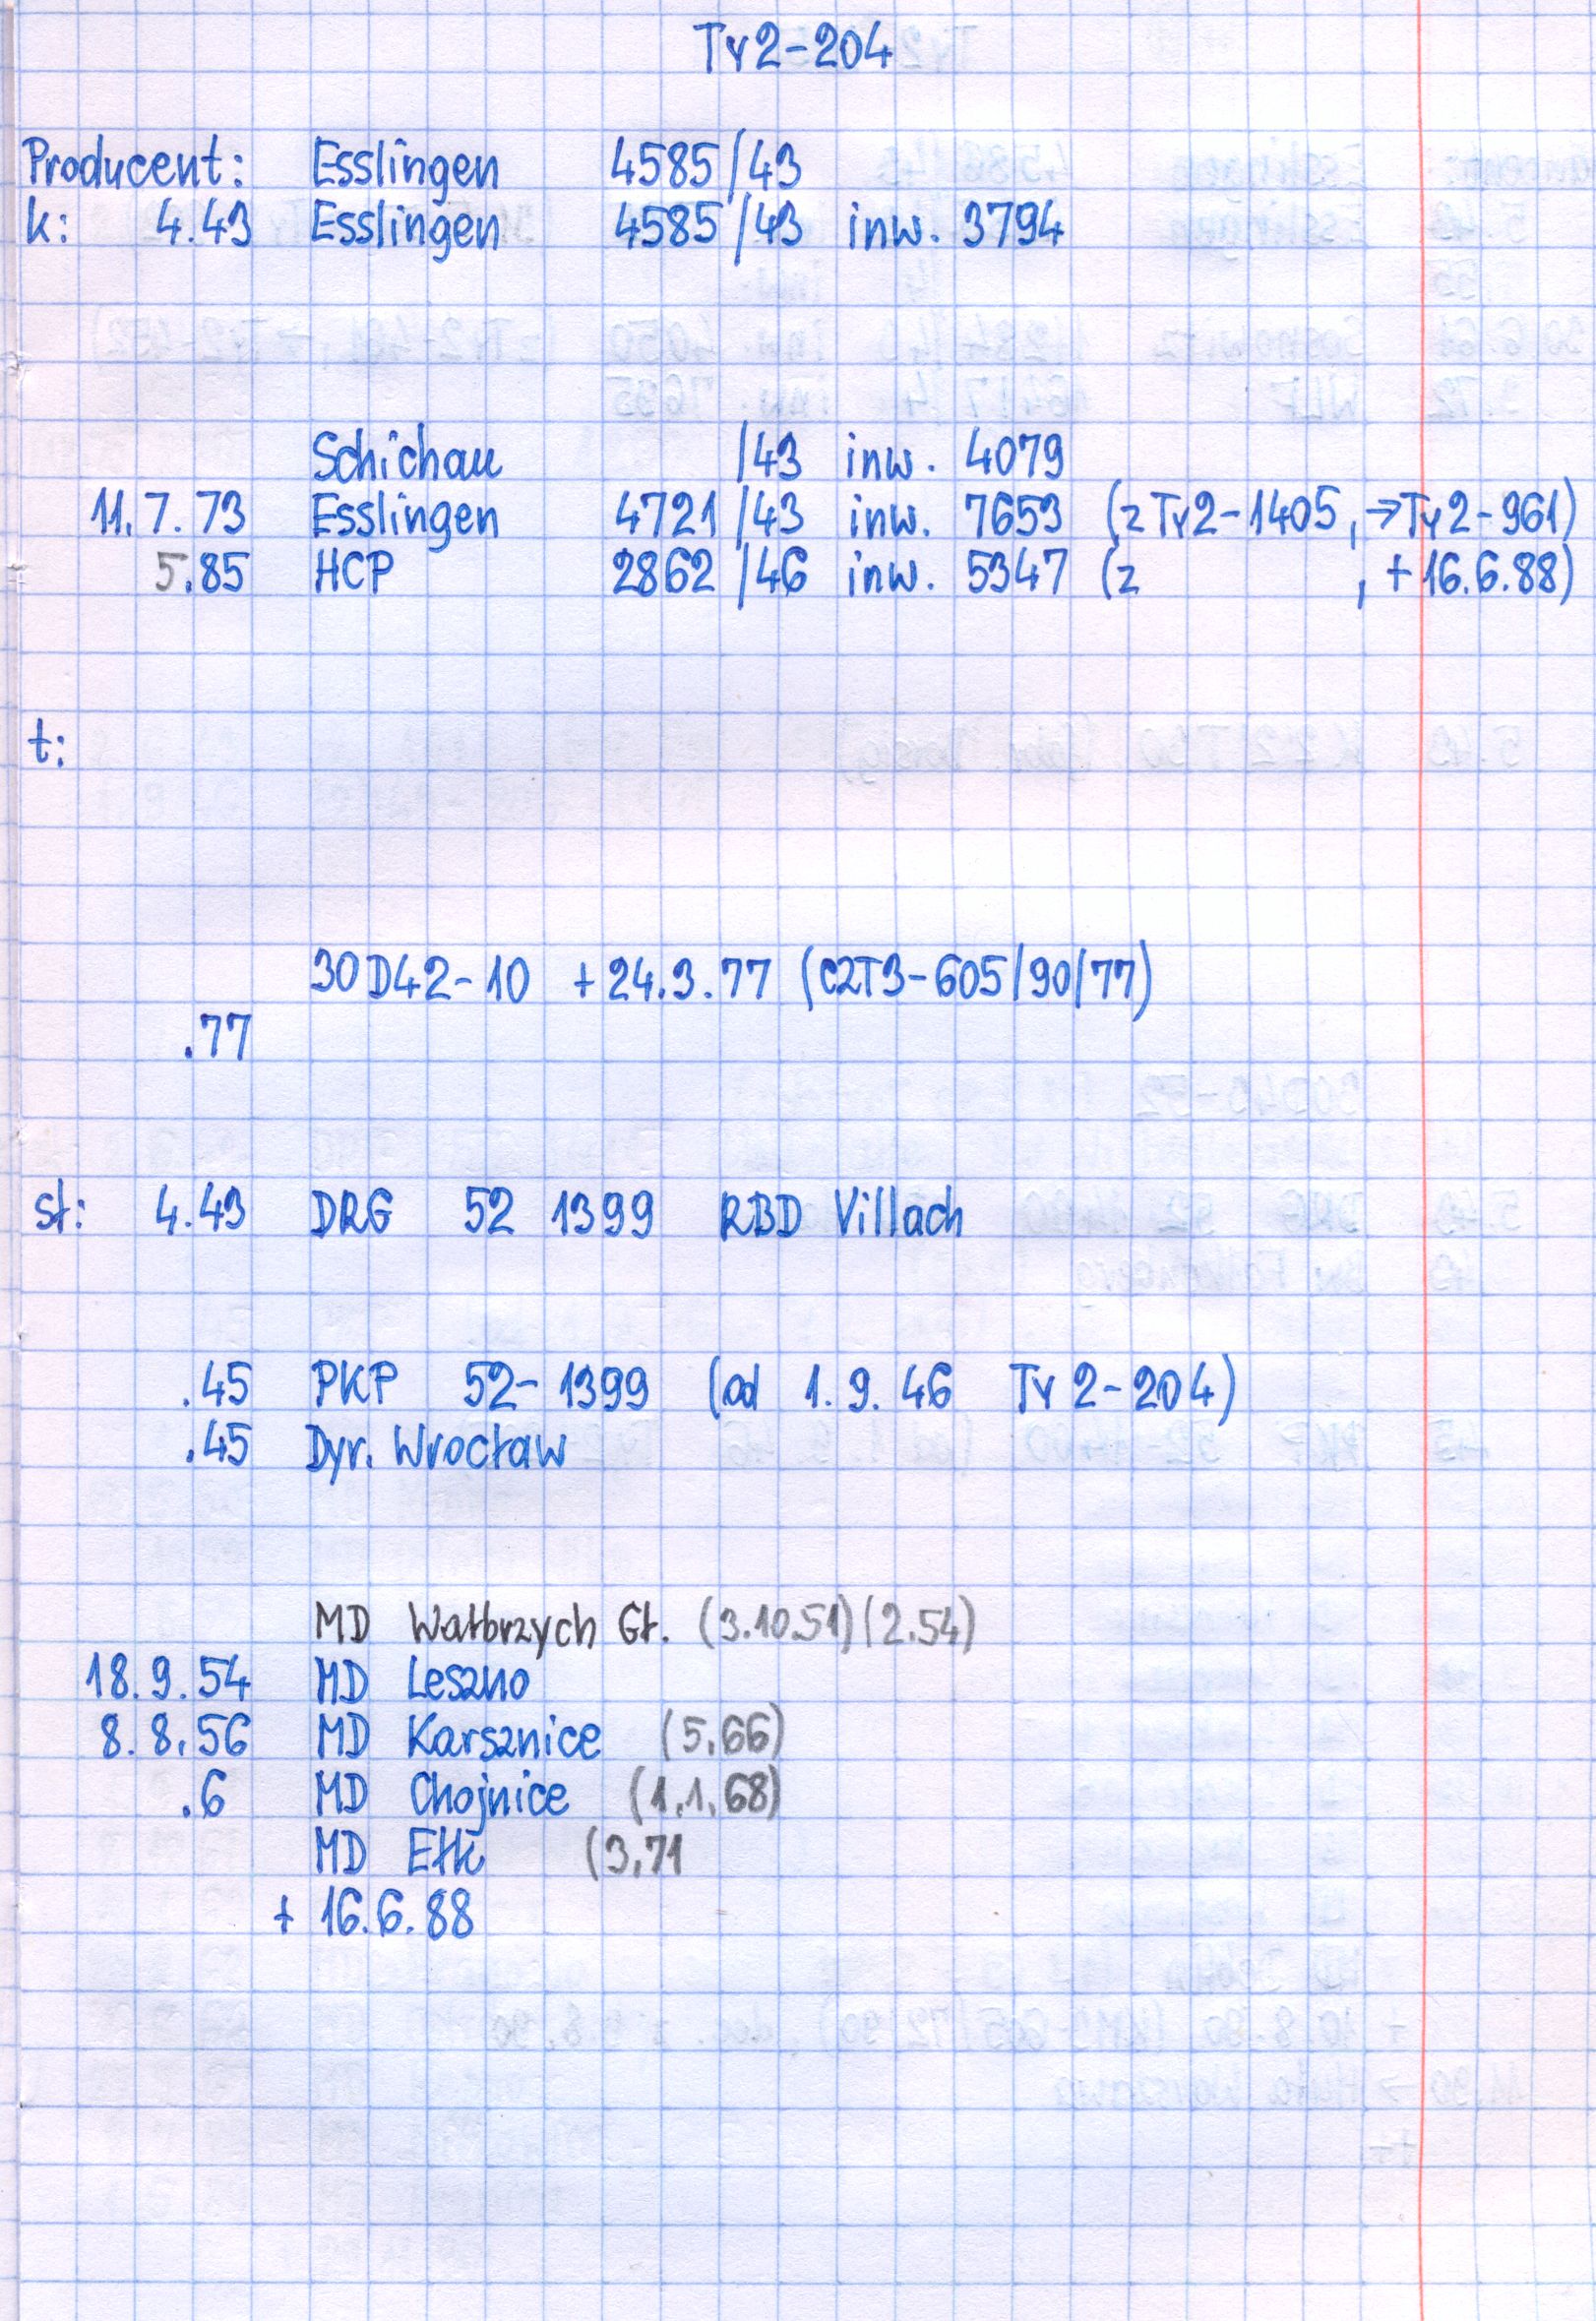 Ty2-204
Producent: Esslingen 4585/43
k: 4.43 Esslingen 4585/43 inw. 3794
Schichau /43 inw. 4079
11.7.73 Esslingen 4721/43 inw. 7653 (z Ty2-1405, →Ty2-961)
5.85 HCP 2862/46 inw. 5347 (z , +16.6.88)
t:
30D42-10 +24.3.77 (C2T3-605/90/77)
.77
st: 4.43 DRG 52 1399 RBD Villach
.45 PKP 52-1399 (od 1.9.46 Ty2-204)
.45 Dyr. Wrocław
MD Wałbrzych Gł. (3.10.51) (2.54)
18.9.54 MD Leszno
8.8.56 MD Karsznice (5.66)
.6 MD Chojnice (1.1.68)
MD Ełk (3.71
+ 16.6.88